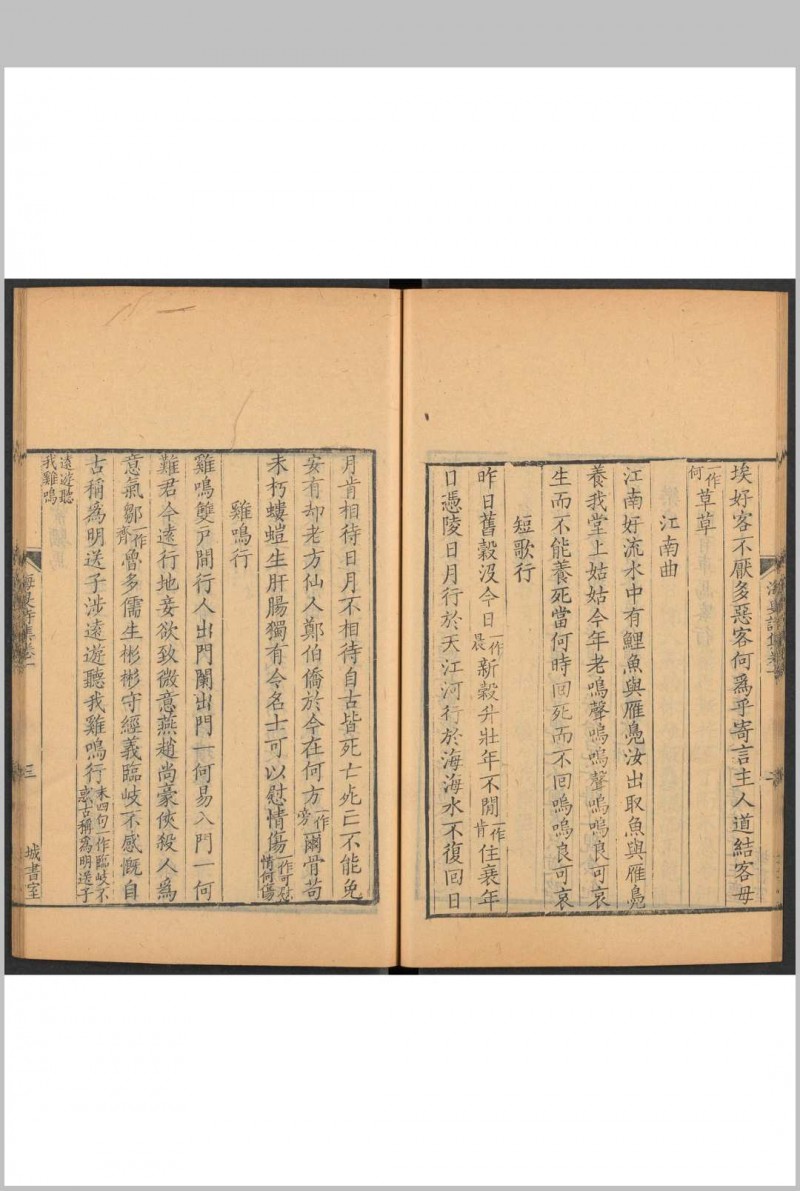 埃好客不厭多惡客何爲乎寄言主人道結客毋
一作何草草
江南曲
江南好流水中有鯉魚與雁鳧汝出取魚與雁鳧
養我堂上姑姑今年老嗚聲嗚嗚聲嗚嗚良可哀
生而不能養死當何時回死而不回嗚嗚良可哀
短歌行
昨日舊穀沒今日一作晨新穀升壯年不閒一作肯住衰年
日憑陵日月行於天江河行於海海水不復回日
月肯相待日月不相待自古皆死亡死亡不能免
安有却老方仙人鄭伯僑於今在何方一作旁爾骨苟
未朽螻螘生肝腸獨有令名士可以慰情傷一作可以情何傷
雞鳴行
雞鳴雙戸間行人出門闌出門一何易入門一何
難君今遠行地妾欲致微意燕趙尚豪俠殺人爲
意氣鄒一作齊魯多儒生彬彬守經義臨岐不感慨自
古稱爲明送子涉遠遊聽我雞鳴行末四句一作臨岐不惑古稱爲明送子
遠遊聽我雞鳴
海叟詩集卷一
三
城書室